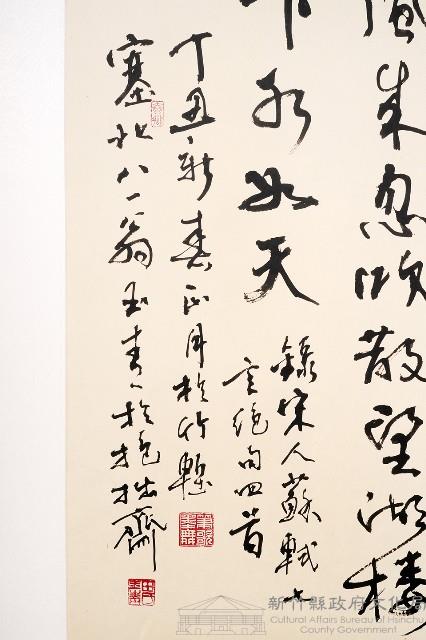 風來忽吹散望湖樓
下水如天
錄宋人蘇軾七
言絕句四首
丁丑新春正月於竹塹
塞北八一翁玉書於抱拙齋
新竹縣政府文化局
Cultural Affairs Bureau of Hsinchu
County Government